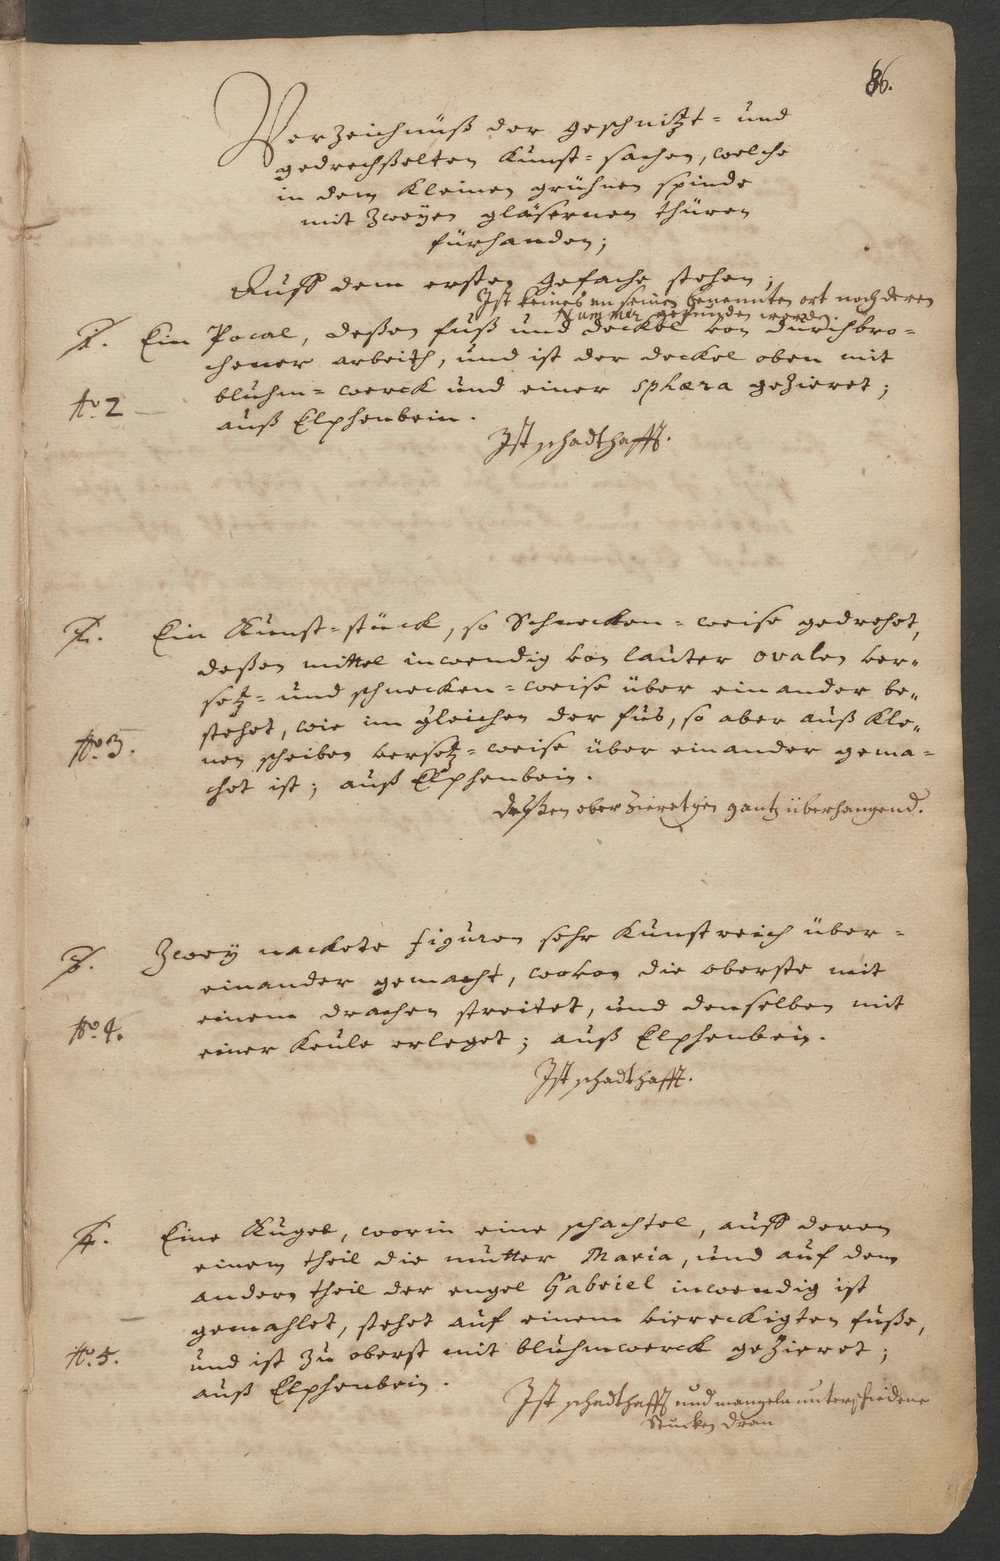 86.
Verzeichnüß der geschnitzt- und
gedrechßelten Kunst-sachen, welche
in dem Kleinen grühnen spinde
mit Zweyen gläsernen thüren
fürhanden;
Auff dem ersten gefache stehen;
Ist keines an seinen benennten ort noch deren
Nummer gefunden worden.
1. Ein Pocal, deßen fuß und deckel von durchbro-
chener arbeith, und ist der deckel oben mit
bluhm-werck und einer sphæra gezieret;
No. 2
auß Elphenbein.
Ist schadthafft.
2. Ein Kunst-stück, so Schnecken-weise gedrehet,
deßen mittel inwendig von lauter ovalen ver-
setz- und schnecken-weise über einander be-
stehet, wie im gleichen der fus, so aber auß Kle-
No. 3.
nen scheiben versetz-weise über einander gema-
chet ist; auß Elphenbein.
deßen ober Zieratgen gantz überhangend.
3. Zwey nackete figuren sehr Kunstreich über-
einander gemacht, wovon die oberste mit
einem drachen streitet, und denselben mit
No. 4.
einer Keule erleget; auß Elphenbein.
Ist schadthafft.
4. Eine Kugel, worin eine schachtel, auff deren
einem theil die mutter Maria, und auf dem
andern theil der engel Gabriel inwendig ist
gemahlet, stehet auf einem viereckigten fuße,
No. 5.
und ist zu oberst mit bluhmwerck gezieret;
auß Elphenbein.
Ist schadthafft und mangeln unterschiedene
Stucken dran